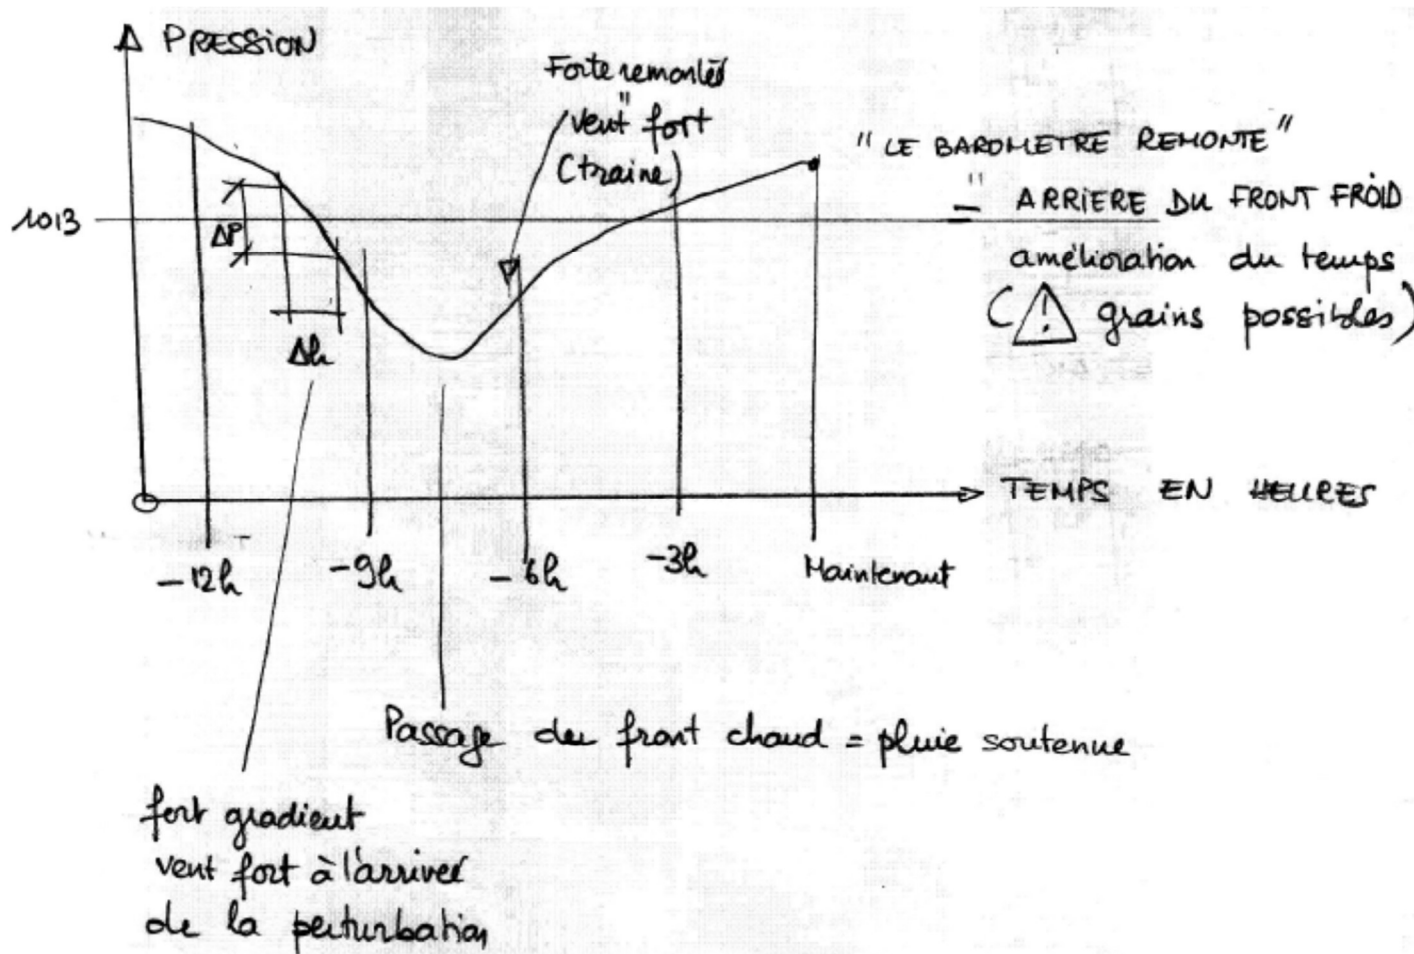 PRESSION
Forte remontée
"vent" fort
(traine)
"LE BAROMETRE REMONTE"
= ARRIERE DU FRONT FROID
amélioration du temps
(! grains possibles)
1013
ΔP
Δh
TEMPS EN HEURES
-12h
-9h
-6h
-3h
Maintenant
Passage du front chaud = pluie soutenue
fort gradient
vent fort à l'arrivée
de la perturbation